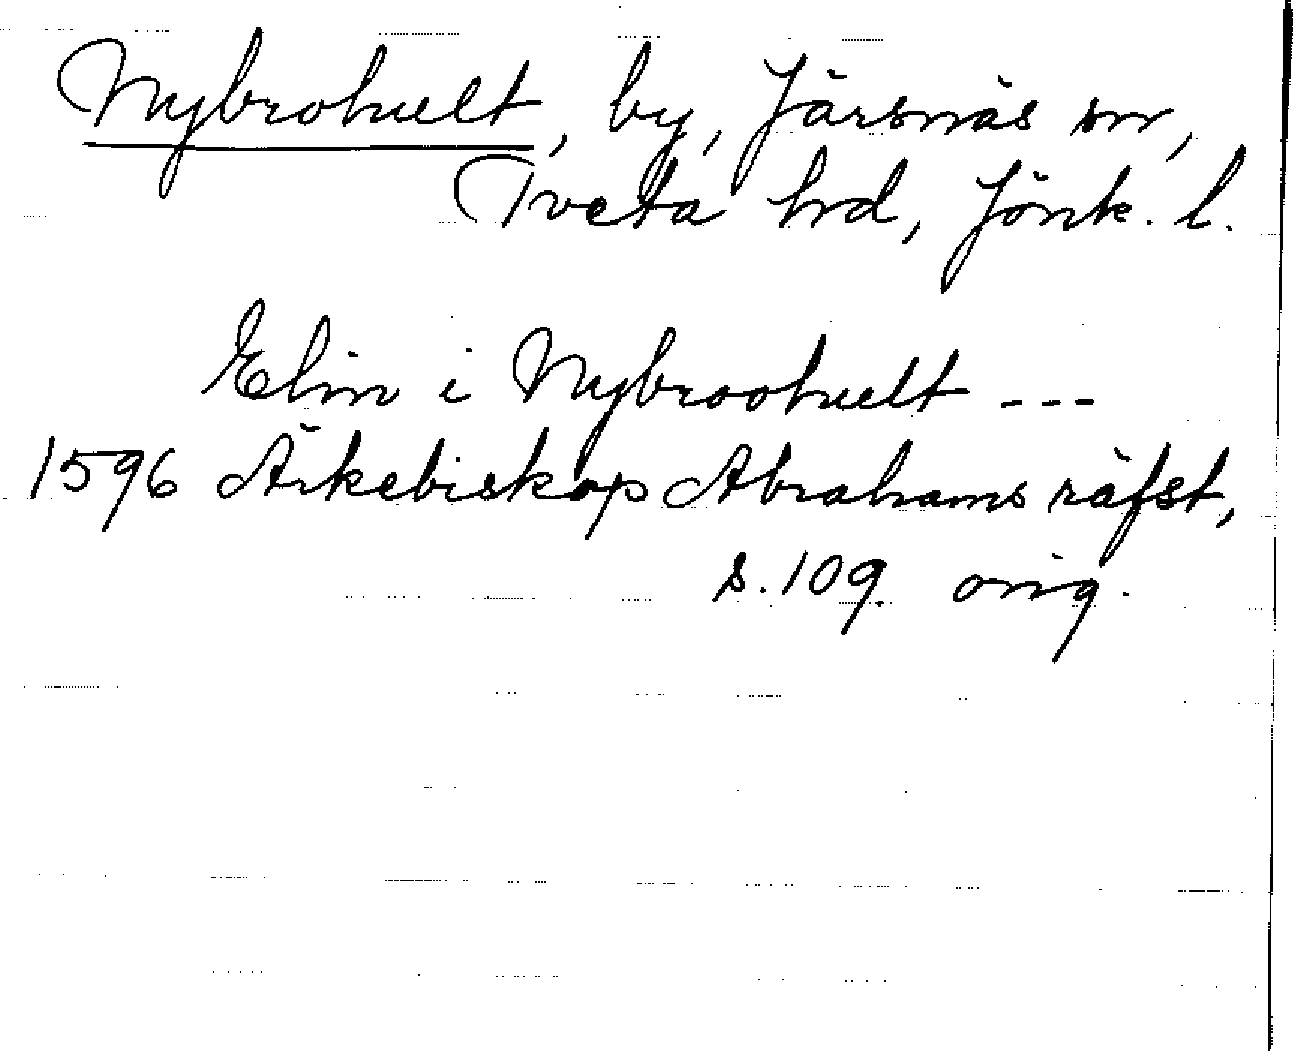 Nybrohult, by, Järsnäs sn,
Tveta hrd, Jönk. l.
Elin i Nybroohult ---
1596 Ärkebiskop Abrahams räfst,
s. 109. orig.